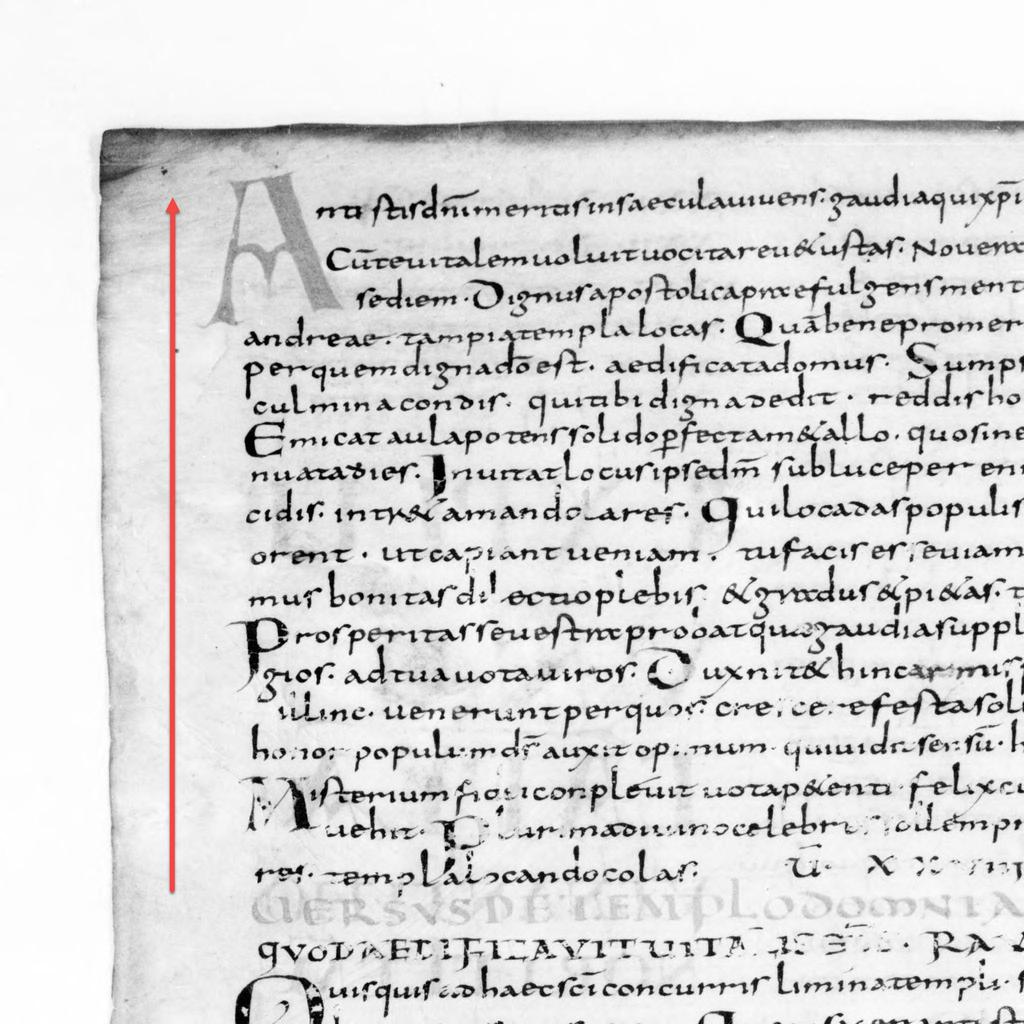 Antistis dnī meritis in saecula vivens · gaudia qui xpī
Cū te vitalem voluit vocitare v&ustas · Novera
sediem · Dignus apostolica praefulgens ment
andreae · tam pia templa locas · Quā bene promer
per quem digna dō est · aedificata domus · Sumps
culmina condis · qui tibi digna dedit · reddis ho
Emicat aula potens solido pfectam&allo · quo sine
nuatadies · Invitat locus ipse dm̄ sub luce peren
cidis · intr&amando lares · Qui loca das populis
orent · ut capiant veniam · tu facis esse viam
mus bonitas dilectio plebis · &gradus &pi&as ·
Prosperitas se vestra probat quae gaudia suppl
gios · ad tua vota viros · Duxnit& hinc
illinc · venerunt per quos crescere festa sol
honor populum ds̄ auxit · qui videt sensū · h
Misterium fidei conplevit vota p&enti · felix cu
vehit · celebr
res · templa locando colas · v̄ · X
VERSUS DE TEMPLO DOMNI A
QVOD AEDIFICAVIT VITA · RA
Quisquis ad haec scī concurris limina templi · s